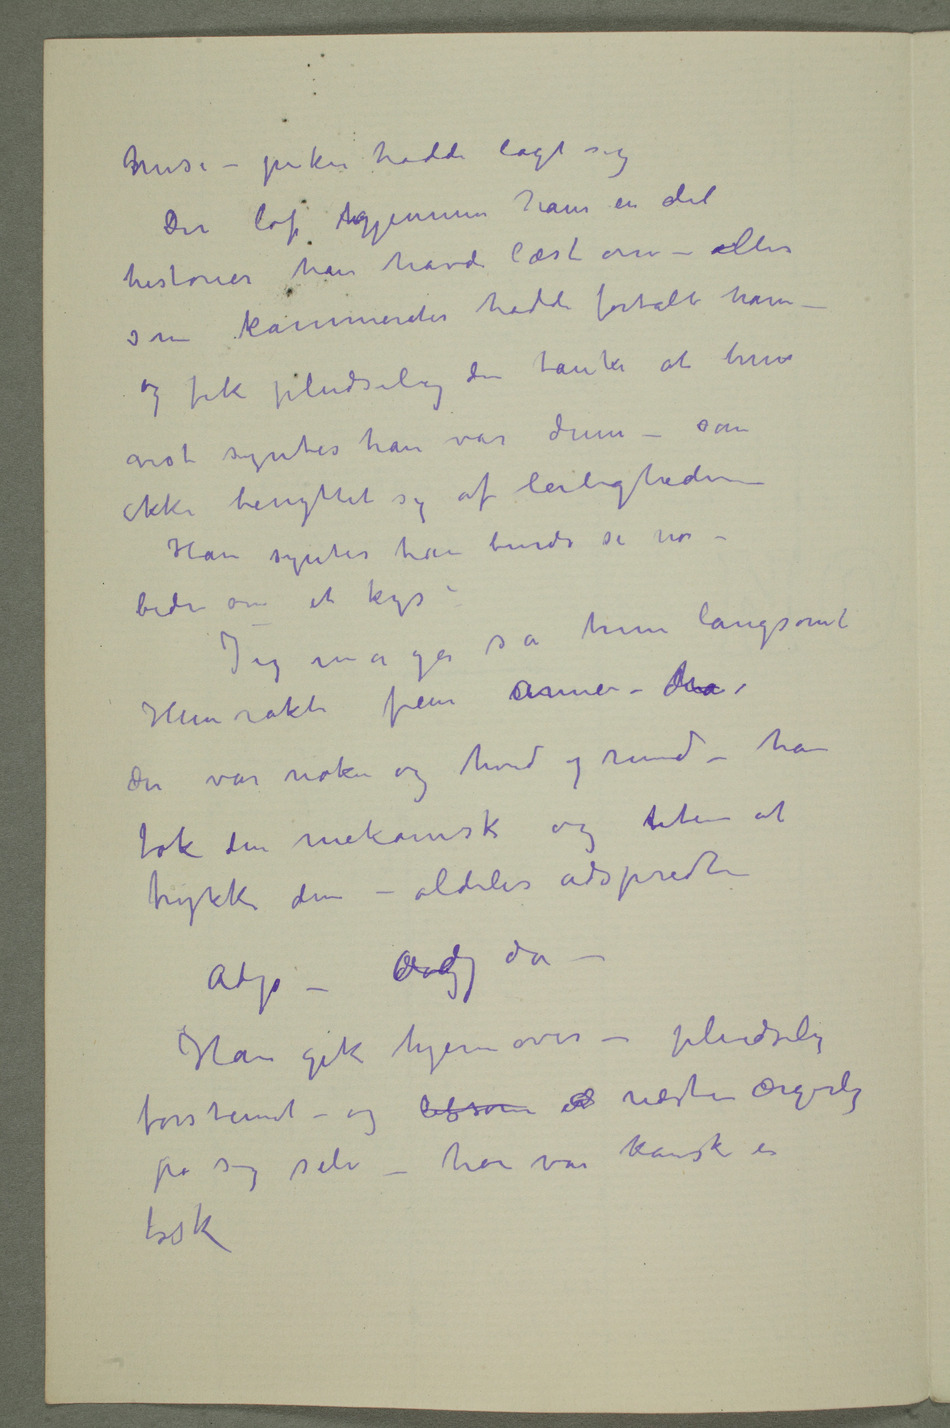 huse – piken hadde lagt sig
Der løp gjennem ham en del
historier han havde læst om – eller
som kammerater hadde fortalt ham –
og fik pludselig den tanke at hun
vist syntes han var dum – som
ikke benyttet sig af leiligheden
Han syntes han burde si no –
bede om et kys –
Jeg må gå sa hun langsomt
Hun rakte frem armen –
den var naken og hvid og rund – han
tok den mekanisk og uten at
trykke den – aldeles adspredt
Adjø – da –
Han gik hjemover – pludselig
forstemt – og næsten ærgerlig
på sig selv – han var kanske en
tosk